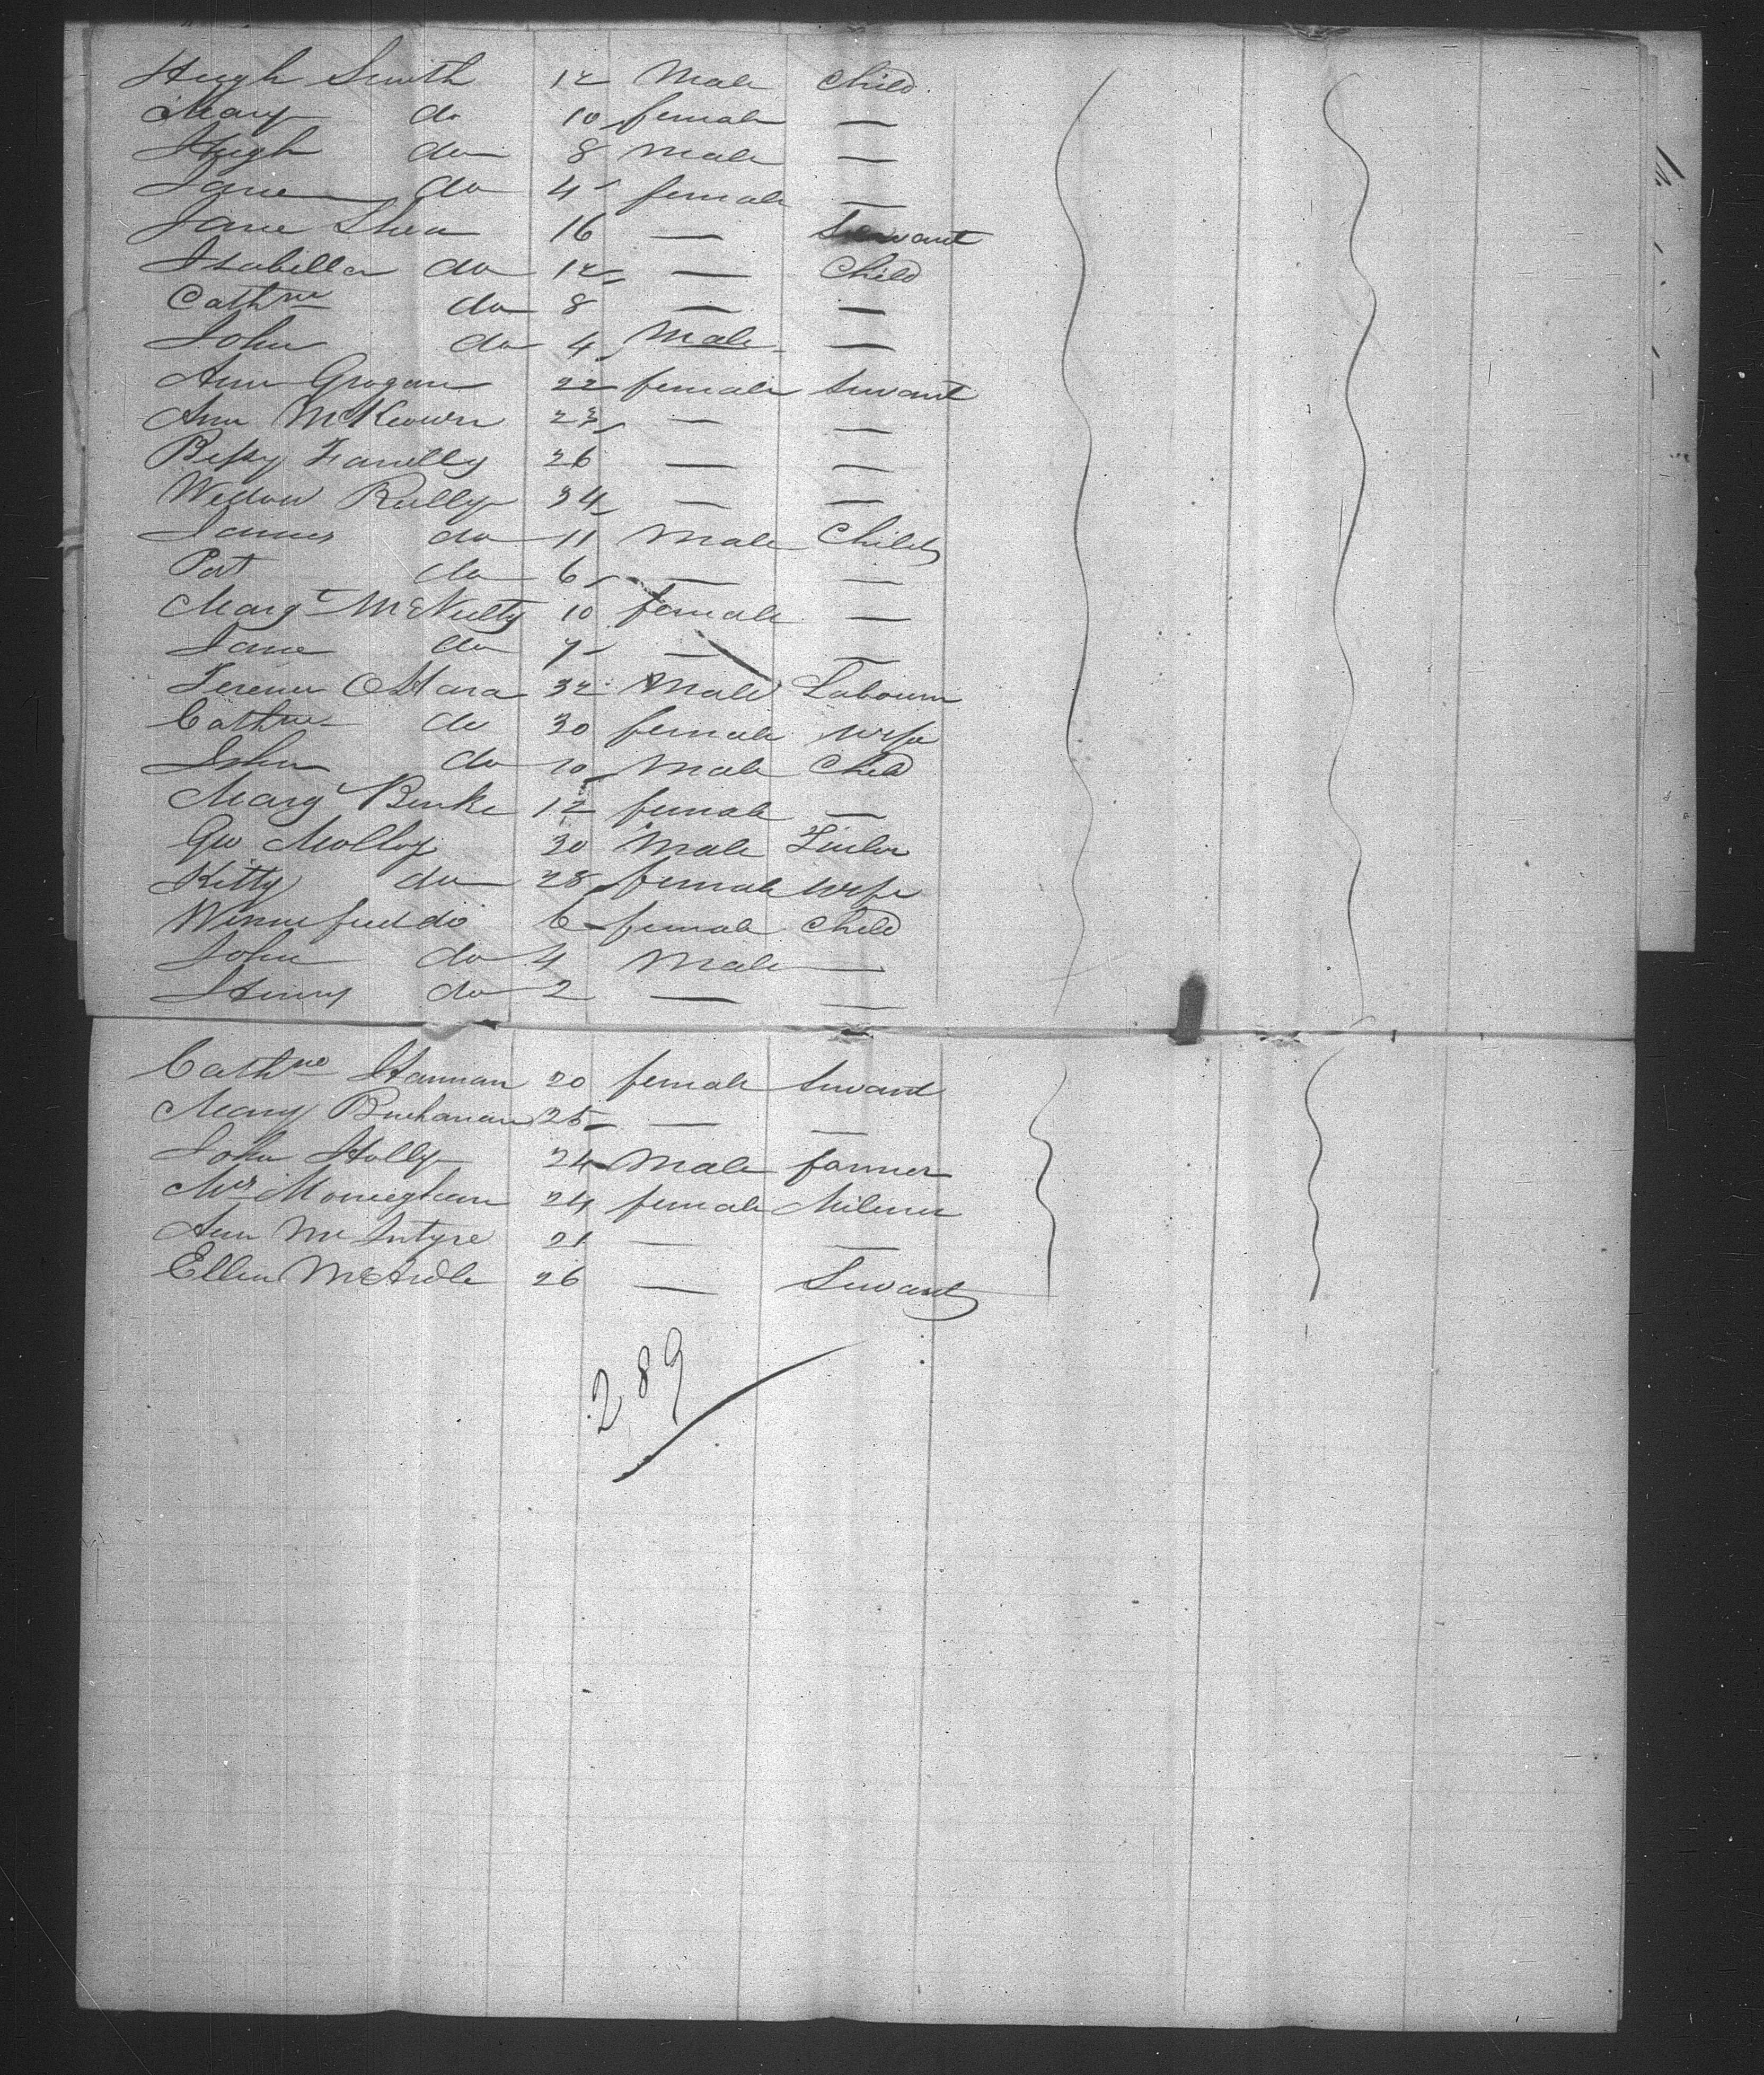 Hugh Smith 12 Male Child
Mary do 10 female —
Hugh do 8 Male —
Jane do 4 female —
Jane Shea 16 — Servant
Isabella do 12 — Child
Cathne do 8 — —
John do 4 Male —
Ann Grogan 22 female Servant
Ann McKeown 23 — —
Bessy Farrelly 26 — —
Widow Reilly 34 — —
James do 11 Male Child
Pat do 6 — —
Margt McNulty 10 female —
Jane do 7 — —
Terence OHara 32 Male Labourer
Cathne do 30 female wife
John do 10 Male Child
Margt Burke 12 female —
Geo Molloy 30 Male
Kitty do 28 female wife
Winnefred do 6 female Child
John do 4 Male —
Henry do 2 — —
Cathne Hannan 20 female Servant
Mary Buchanan 25 — —
John Holly 24 Male farmer
Mrs Monieghan 24 female Miliner
Ann McIntyre 21 — —
Ellen McArdle 26 — Servant
289